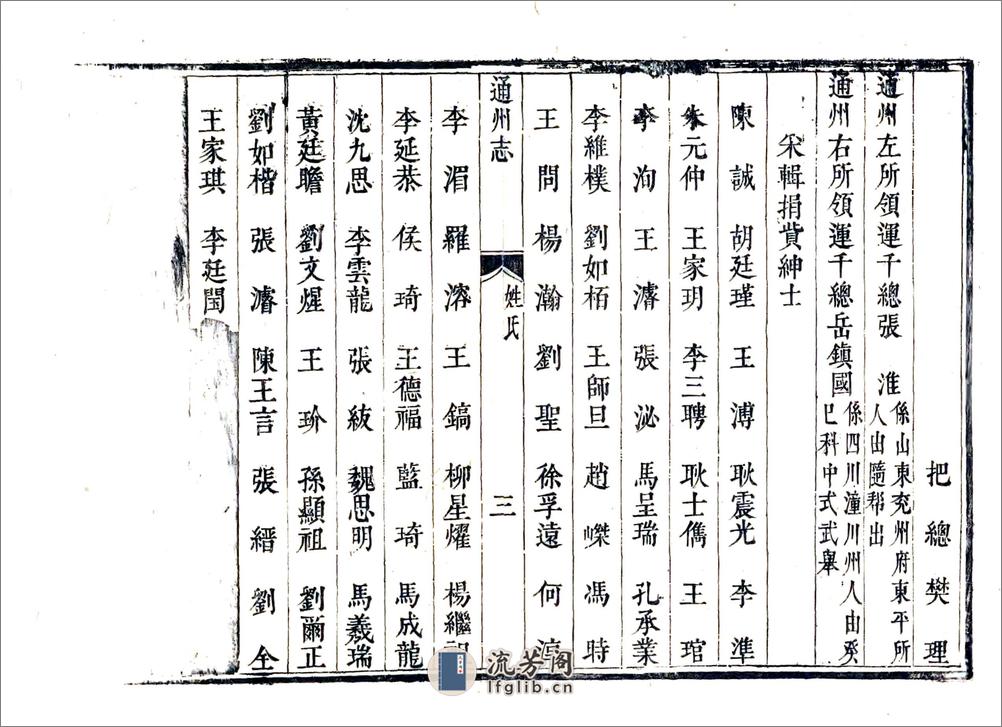 把總樊理
通州左所領運千總張 淮 係山東兖州府東平所人由隨帮出
通州右所領運千總岳鎮國 係四川潼川州人由癸巳科中式武舉
采輯捐貲紳士
陳 誠 胡廷瑾 王 溥 耿震光 李 準
朱元仲 王家玥 李三聘 耿士儁 王 琯
李 洵 王 濬 張 泌 馬呈瑞 孔承業
李維樸 劉如栢 王師旦 趙 嶸 馮 時
王 問 楊 瀚 劉 聖 徐孚遠 何
通州志 姓氏 三
李 湄 羅 溶 王 鎬 柳星燿 楊繼祖
李延恭 侯 琦 王德福 藍 琦 馬成龍
沈九思 李雲龍 張 紱 魏思明 馬義瑞
黃廷瞻 劉文煋 王 玠 孫顯祖 劉爾正
劉如楷 張 濬 陳王言 張 縉 劉 全
王家琪 李廷閏
流芳阁
lfglib.cn